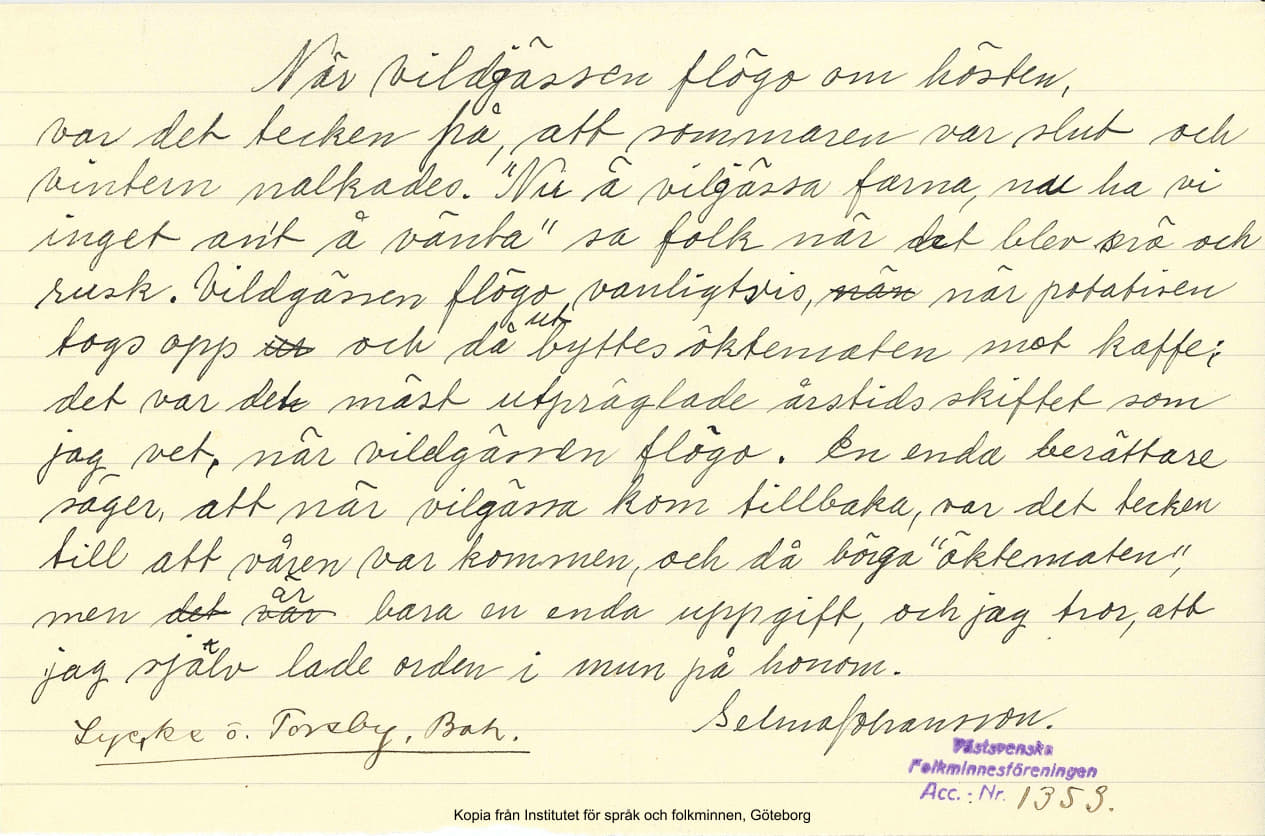 När vildgässen flögo om hösten,
var det tecken på, att sommaren var slut och
vintern nalkades. "Nu ä vilgässa farna, nu ha vi
inget ant å vänta" sa folk när det blev srö och
rusk. Vildgässen flögo, vanligtvis, när när potatisen
togs opp ur och då utbyttes öktematen mot kaffe;
det var det mäst utpräglade årstidsskiftet som
jag vet, när vildgässen flögo. En enda berättare
säger, att när vilgässa kom tillbaka, var det tecken
till att våren var kommen, och då börga "öktematen",
men det var är bara en enda uppgift, och jag tror, att
jag själv lade orden i mun på honom.
Lycke ö. Torsby, Boh.
Selma Johansson.
Västsvenska
Folkminnesföreningen
Acc.: Nr. 1353.
Kopia från Institutet för språk och folkminnen, Göteborg